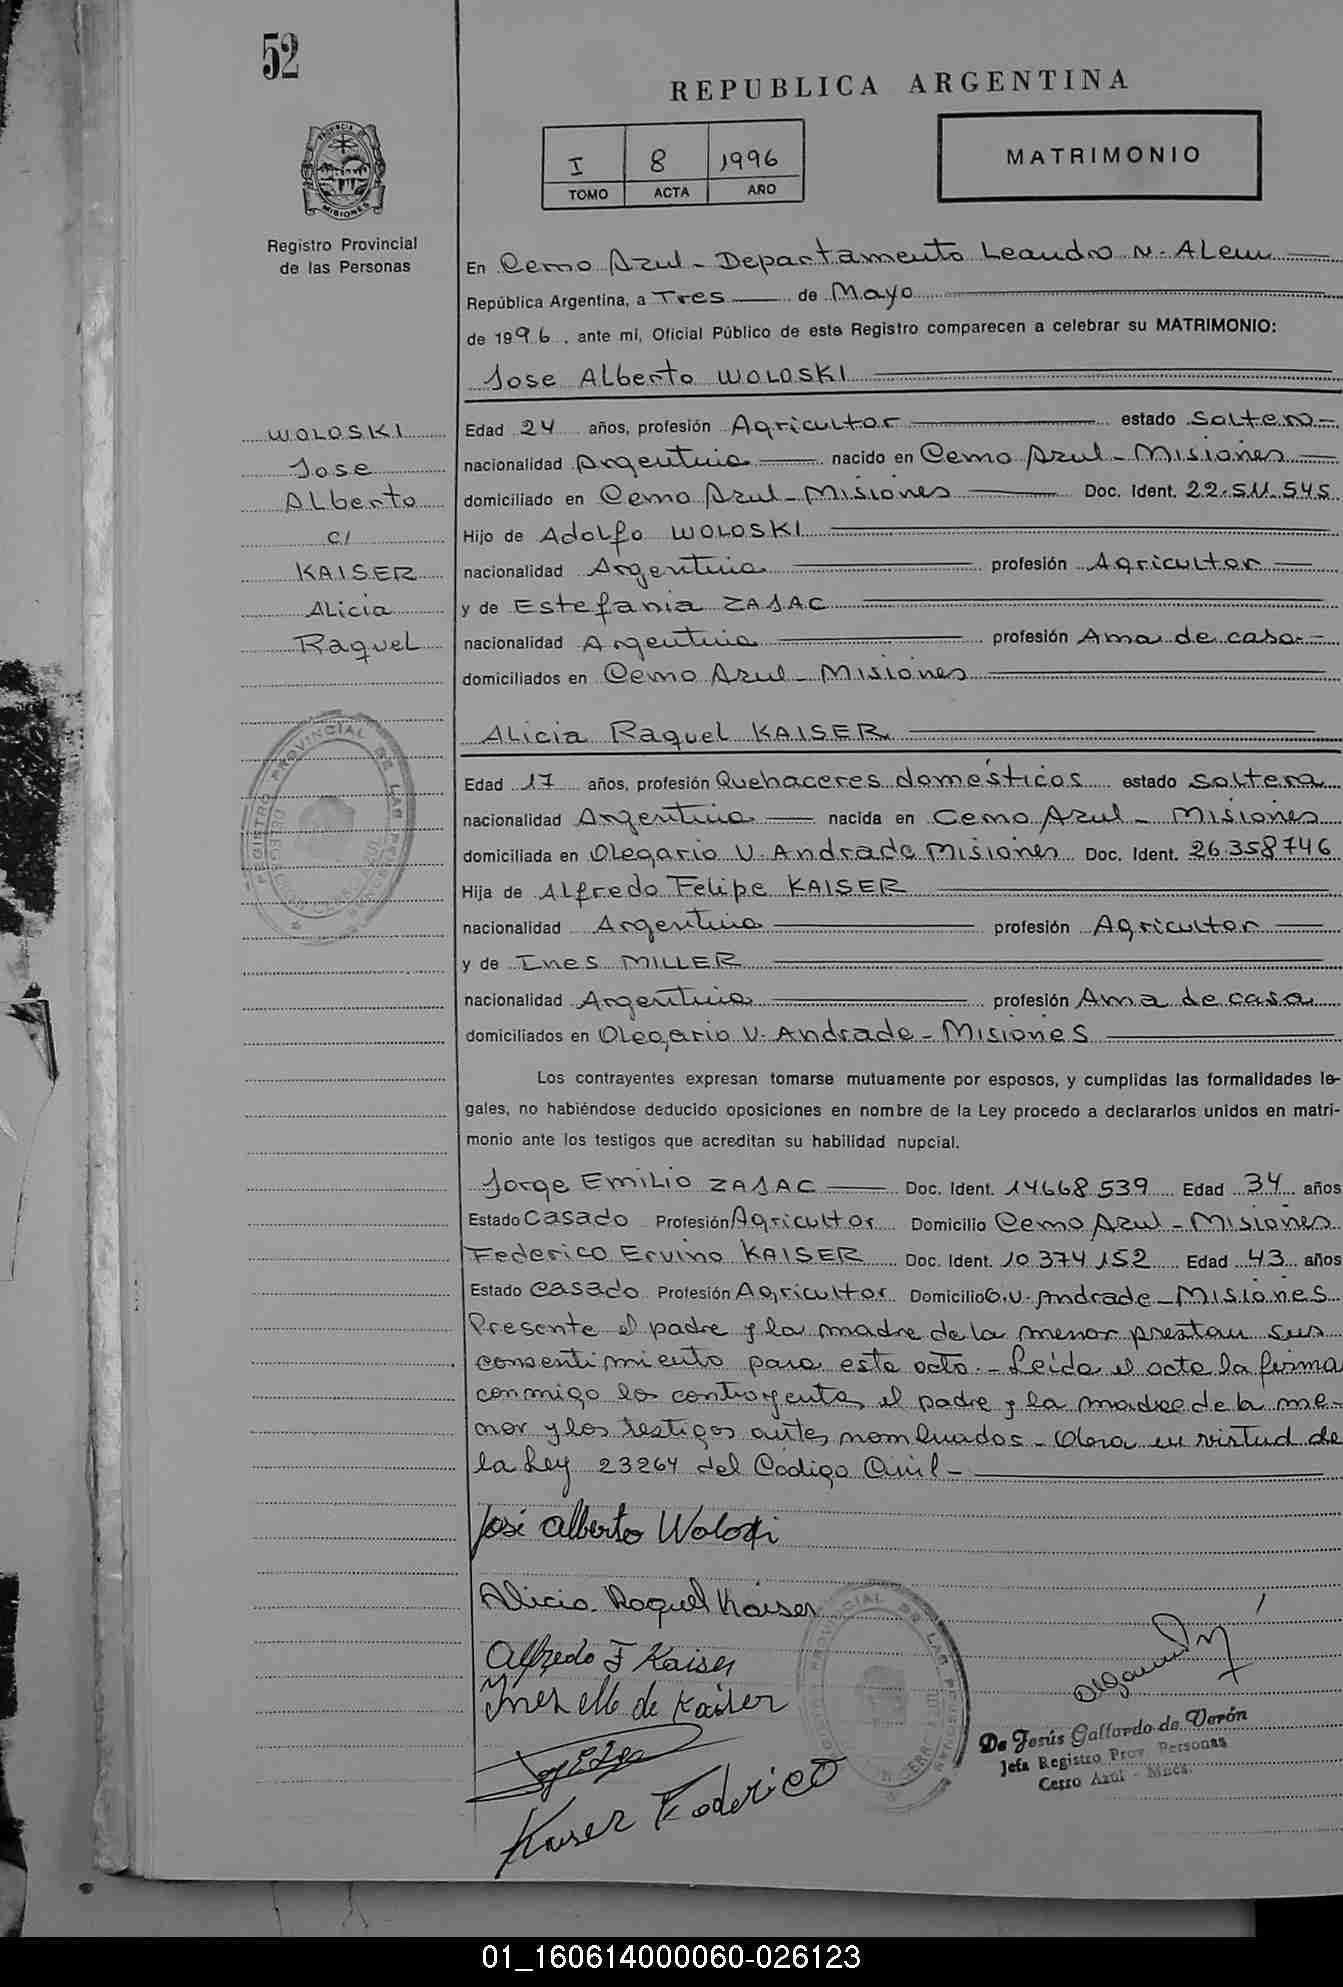 52
REPUBLICA ARGENTINA
I 8 1996
TOMO ACTA AÑO
MATRIMONIO
PROVINCIA DE
MISIONES
Registro Provincial
de las Personas
En Cerro Azul - Departamento Leandro N. ALem
República Argentina, a Tres de Mayo
de 1996, ante mí, Oficial Público de este Registro comparecen a celebrar su MATRIMONIO:
Jose Alberto WOLOSKI
WOLOSKI
Jose
Alberto
c/
KAISER
Alicia
Raquel
Edad 24 años, profesión Agricultor estado Soltero
nacionalidad Argentina nacido en Cerro Azul - Misiones
domiciliado en Cerro Azul - Misiones Doc. Ident. 22.511.545
Hijo de Adolfo WOLOSKI
nacionalidad Argentina profesión Agricultor
y de Estefania ZAJAC
nacionalidad Argentina profesión Ama de casa
domiciliados en Cerro Azul - Misiones
Alicia Raquel KAISER
Edad 17 años, profesión Quehaceres domésticos estado soltera
nacionalidad Argentina nacida en Cerro Azul - Misiones
domiciliada en Olegario V. Andrade Misiones Doc. Ident. 26358746
Hija de Alfredo Felipe KAISER
nacionalidad Argentina profesión Agricultor
y de Ines MILLER
nacionalidad Argentina profesión Ama de casa
domiciliados en Olegario V. Andrade - Misiones
Los contrayentes expresan tomarse mutuamente por esposos, y cumplidas las formalidades le-
gales, no habiéndose deducido oposiciones en nombre de la Ley procedo a declararlos unidos en matri-
monio ante los testigos que acreditan su habilidad nupcial.
Jorge Emilio ZAJAC Doc. Ident. 14668.539 Edad 34 años
Estado Casado Profesión Agricultor Domicilio Cerro Azul - Misiones
Federico Ervino KAISER Doc. Ident. 10.374.152 Edad 43 años
Estado Casado Profesión Agricultor Domicilio O.V. Andrade - Misiones
Presente el padre y la madre de la menor prestan sus
consentimiento para este acto. - Leída el acta la firma
conmigo los contrayentes, el padre y la madre de la me-
nor y los testigos antes nombrados - Obra en virtud de
la Ley 23264 del Código Civil -
José Alberto Woloski
Alicia Raquel Kaiser
Alfredo F Kaiser
Ines M de Kaiser
Kaiser Federico
REGISTRO PROVINCIAL DE LAS PERSONAS
De Jesús Gallardo de Verón
Jefa Registro Prov. Personas
Cerro Azul - Mnes.
01_160614000060-026123